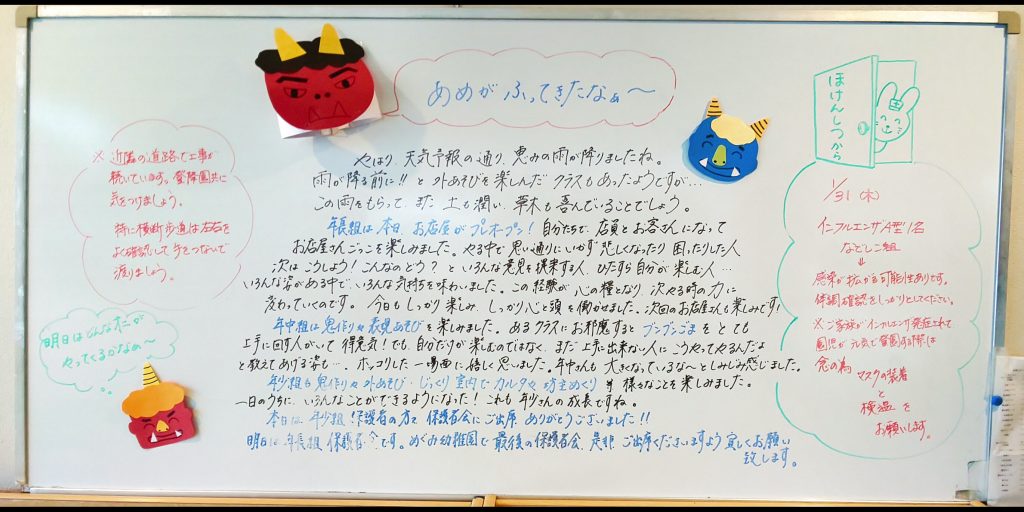 あめがふってきたなぁ～
やはり、天気予報の通り、恵みの雨が降りましたね。
雨が降る前に!! と外あそびを楽しんだクラスもあったようですが…
この雨をもらって、また土も潤い、草木も喜んでいることでしょう。
年長組は本日、お店屋がプレオープン! 自分たちで、店員とお客さんになって
お店屋さんごっこを楽しみました。やる中で思い通りにいかず悲しくなったり困ったりした人
次はこうしよう! こんなのどう? といろんな意見を提案する人、ひたすら自分が楽しむ人…
いろんな姿がある中で、いろんな気持ちを味わいました。この経験が心の糧となり、次やる時の力に
変わっていくのです。今日もしっかり楽しみ、しっかり心と頭を働かせました。次回のお店屋さんも楽しみです!
年中組は鬼作りや表現あそびを楽しみました。あるクラスにお邪魔するとブンブンごまをとても
上手に回す人がいて得意気! でも、自分だけが楽しむのではなく、まだ上手に出来ない人にこうやってやるんだよ
と教えてあげる姿…ホッコリした一場面に嬉しく思いました。年中さんも大きくなっているな～としみじみ感じました。
年少組も鬼作りや外あそび・じっくり室内でカルタや坊主めくり等様々なことを楽しみました。
一日のうちに、いろんなことができるようになった! これも年少さんの成長ですね。
本日は年少組保護者の方々、保護者会にご出席ありがとうございました!!
明日は年長組保護者会です。めぐみ幼稚園で最後の保護者会、是非ご出席くださいますよう宜しくお願い
致します。
※近隣の道路で工事が
続いています。登降園共に
気をつけましょう。
特に横断歩道は左右を
よく確認して手をつないで
渡りましょう。
明日はどんなオニが
やってくるかなぁ～
ほけんしつから
1/31(木)
インフルエンザA型1名
なでしこ組
⇓
感染が拡がる可能性ありです。
体調確認をしっかりとしてください。
※ご家族がインフルエンザ発症されて
園児が元気で登園する際は
念の為 マスクの装着
と
検温を
お願いします。